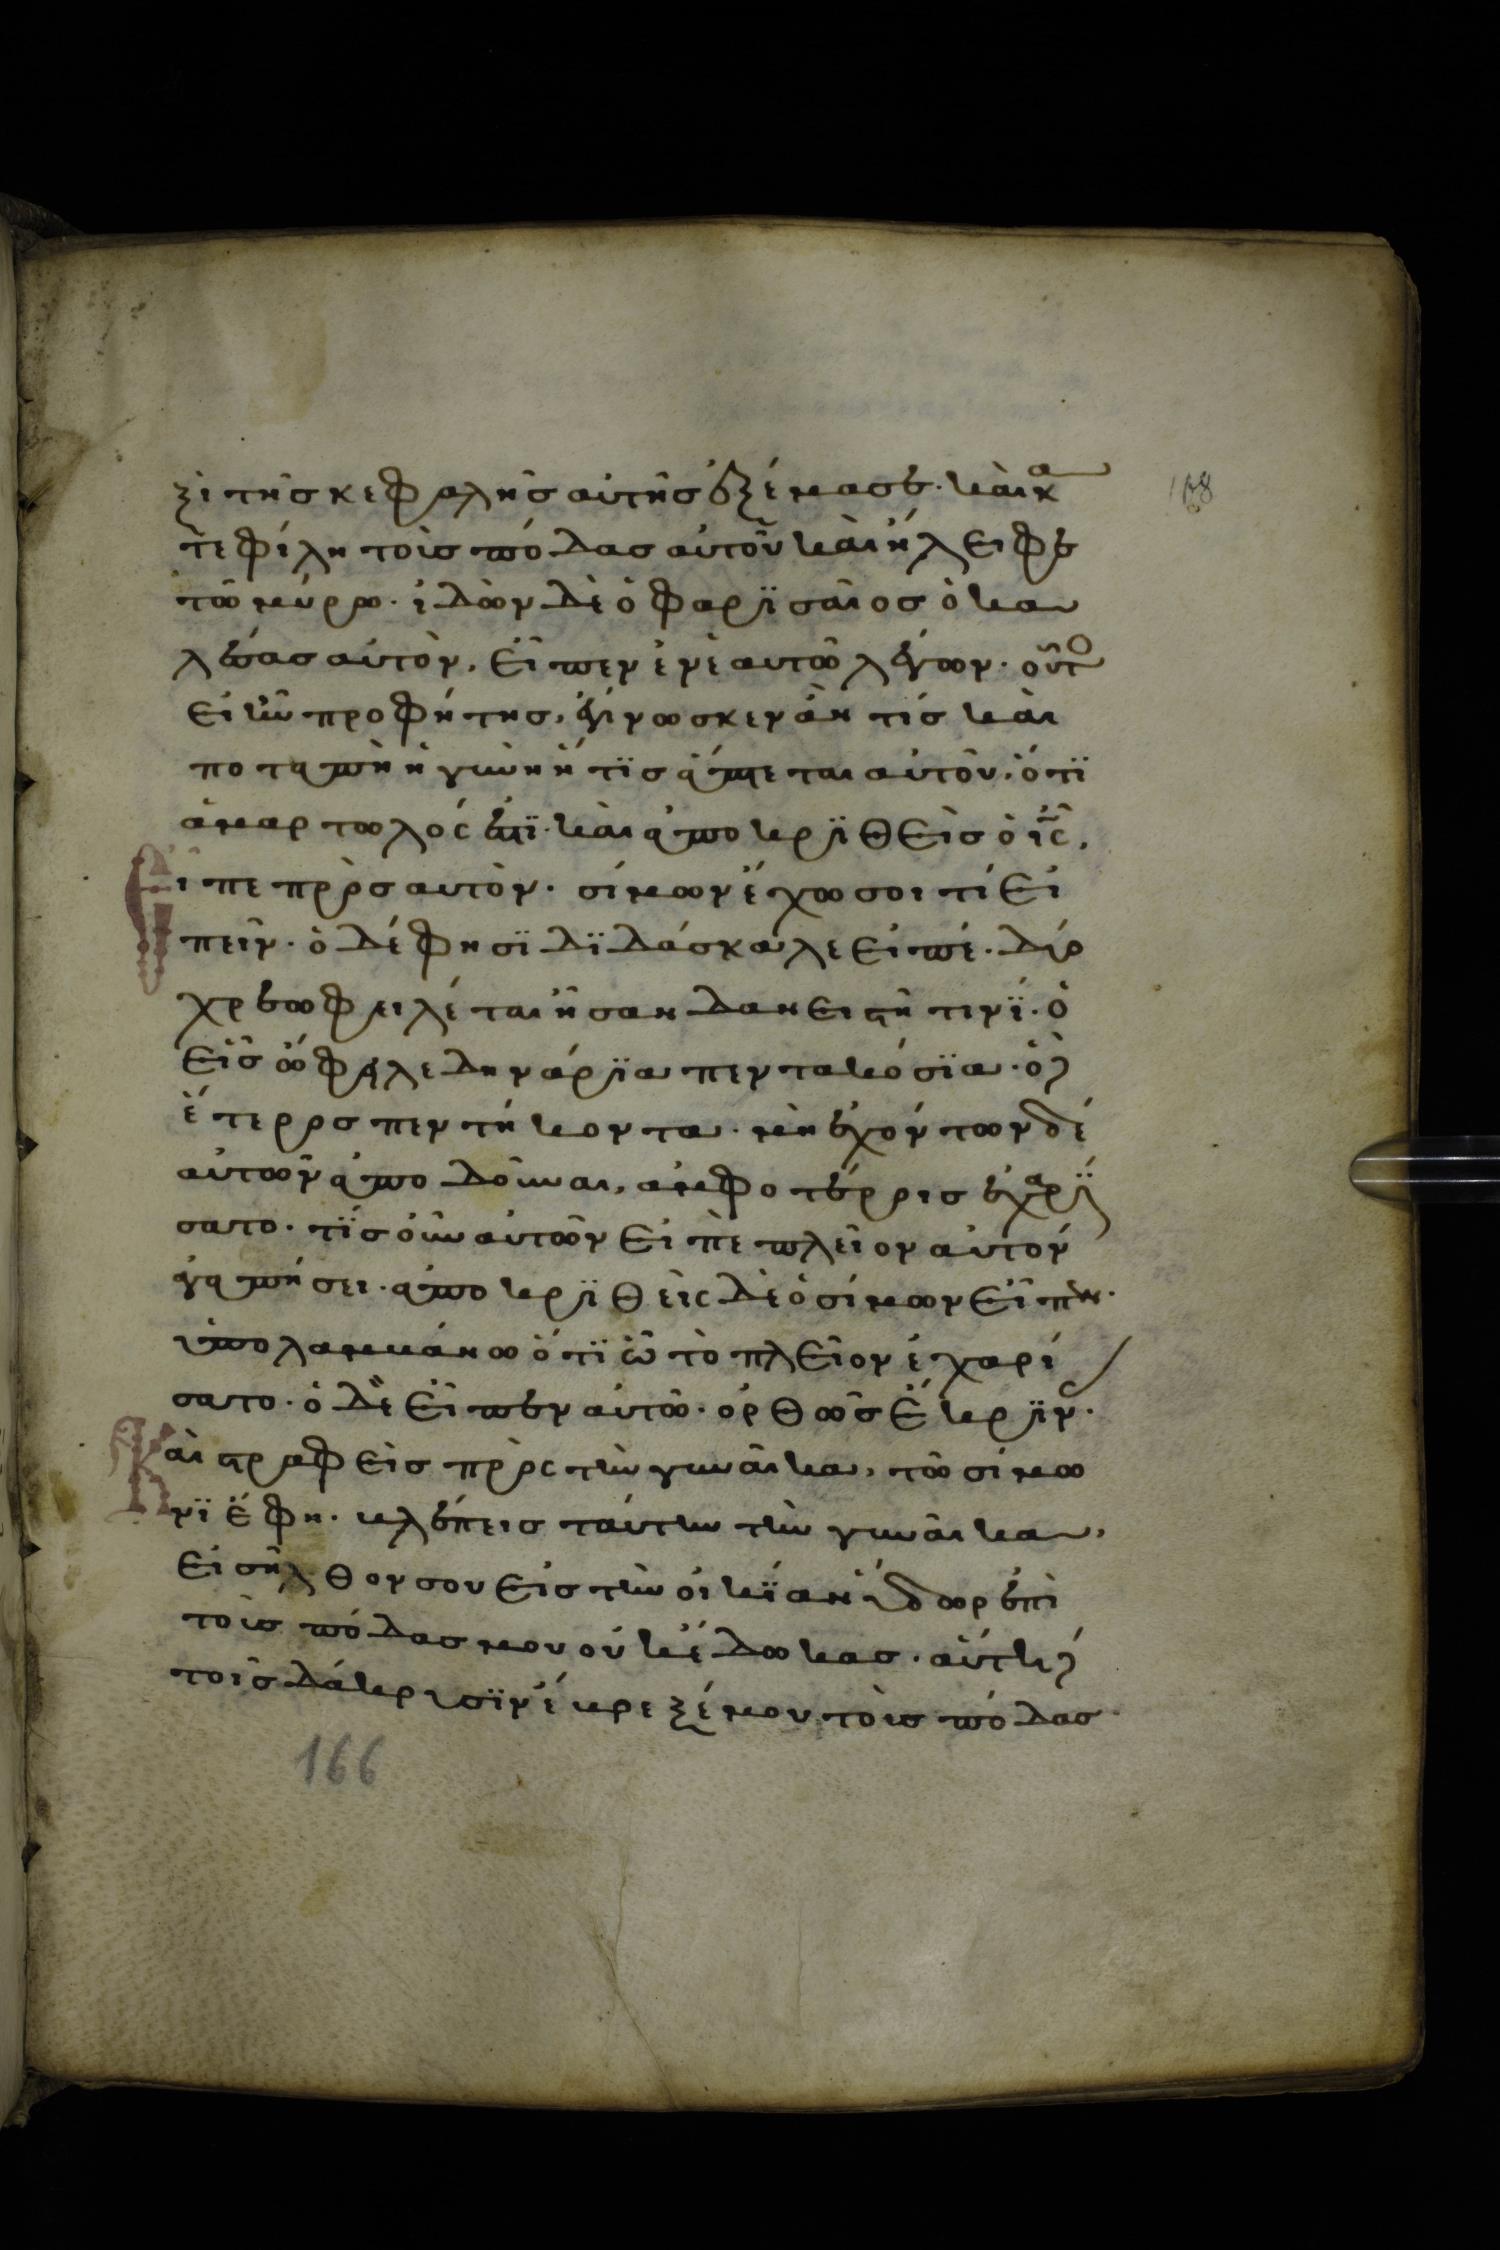 ξὶ τῆσ κεφαλῆσ αὐτῆσ ἐξέμασε· καὶ κα
τεφίλη τοὺσ πόδασ αὐτοῦ καὶ ἤλειφε
τῶ μύρω· ἰδὼν δὲ ὁ φαρϊσαῖοσ ὁ κα
λέσασ αὐτὸν, εἶπεν ἐν ἑαυτῶ λέγων· οὗτο
εἰ ἦν προφήτησ, ἐγίνωσκεν ἂν τίσ καὶ
ποταπὴ ἡ γυνὴ ἥ τϊσ ἅπτεται αὐτοῦ, ὅτϊ
ἁμαρτωλός ἐστϊ· καὶ ἀποκρϊθεὶσ ὁ ι̅ς̅,
Εἶπε πρὸσ αυτὸν· σίμων ἔχω σοι τί εἰ
πεῖν· ὁ δέ φησϊ δϊδάσκαλε εἰπέ· δύο
χρεωφειλέται ἦσαν δανειστῆ τινϊ· ὁ
εἷσ ὤφειλε δηνάρϊα πεντακόσϊα· ὁ
ἕτεροσ πεντήκοντα· μὴ ἐχόντων δέ
αὐτῶν ἀποδοῦναι, ἀμφοτέροισ ἐχαρϊ
σατο· τίσ οὖν αὐτῶν εἰπὲ πλεῖον αὐτόν
ἀγαπήσει· ἀποκρϊθεὶς δὲ ὁ σίμων εἶπεν·
ὑπολαμμάνω ὅτϊ ὧ τὸ πλεῖον ἐχαρί
σατο· ὁ δὲ εἶπεν αὐτῶ· ὀρθῶσ ἔκρϊν·
Καὶ στραφεὶσ πρὸς τὴν γυναῖκα, τῶ σίμω
νϊ ἔφη· βλέπεισ ταύτην τὴν γυναῖκα,
εἰσῆλθον σου εἰσ τὴν οἰκΐαν ὕδωρ ἐπὶ
τοὺσ πόδασ μου οὐκ ἔδωκασ· αὕτη
τοῖσ δάκρυσϊν ἔβρεξέ μου τοὺσ πόδασ
166